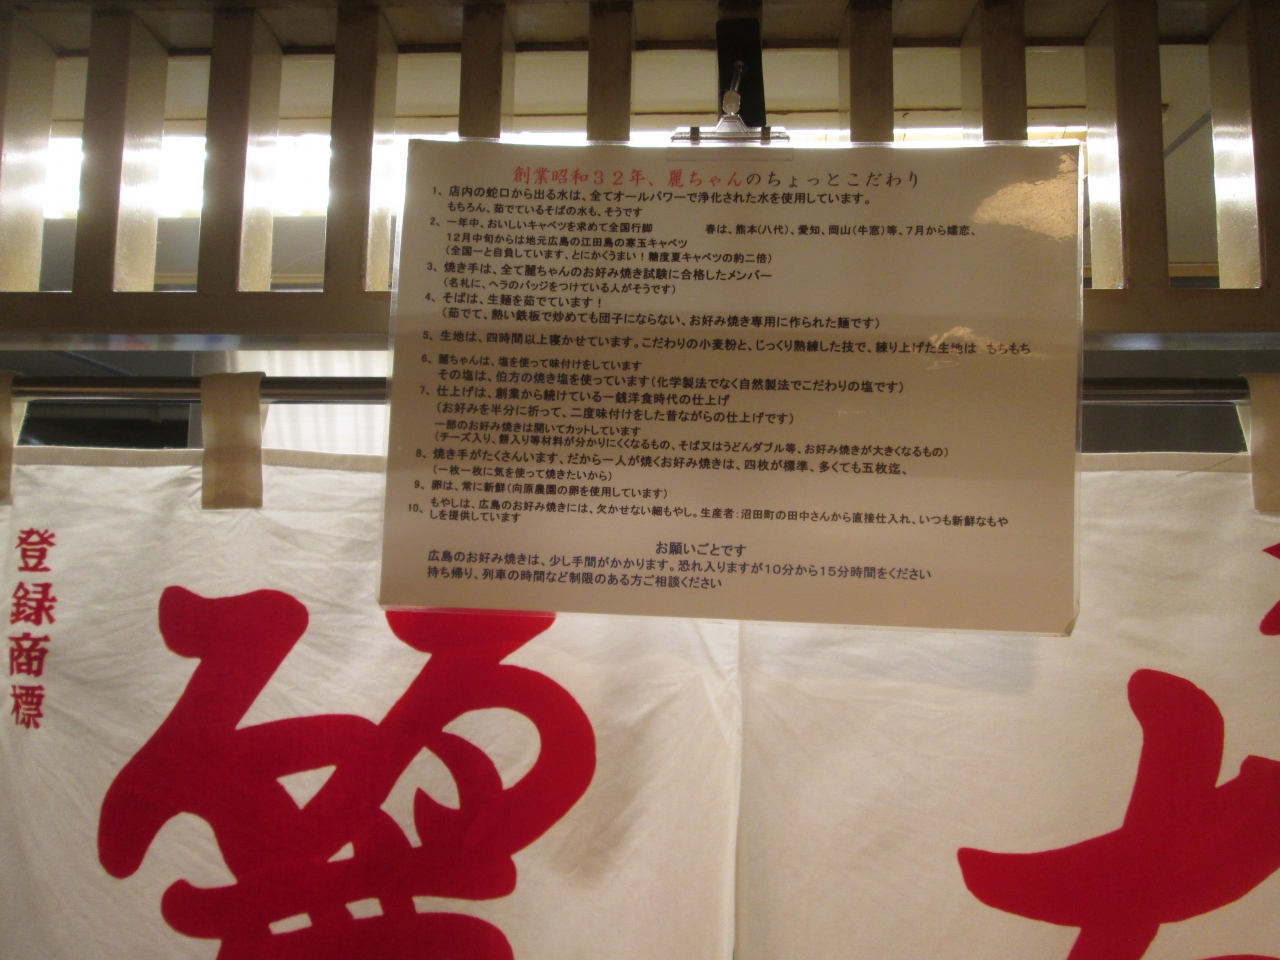 創業昭和32年、麗ちゃんのちょっとこだわり
1、店内の蛇口から出る水は、全てオールパワーで浄化された水を使用しています。
もちろん、茹でているそばの水も、そうです
2、一年中、おいしいキャベツを求めて全国行脚 春は、熊本(八代)、愛知、岡山(牛窓)等、7月から嬬恋、
12月中旬からは地元広島の江田島の寒玉キャベツ
(全国一と自負しています、とにかくうまい!糖度夏キャベツの約二倍)
3、焼き手は、全て麗ちゃんのお好み焼き試験に合格したメンバー
(名札に、ヘラのバッジをつけている人がそうです)
4、そばは、生麺を茹でています!
(茹でて、熱い鉄板で炒めても団子にならない、お好み焼き専用に作られた麺です)
5、生地は、四時間以上寝かせています。こだわりの小麦粉と、じっくり熟練した技で、練り上げた生地は もちもち
6、麗ちゃんは、塩を使って味付けをしています
その塩は、伯方の焼き塩を使っています(化学製法でなく自然製法でこだわりの塩です)
7、仕上げは、創業から続けている一銭洋食時代の仕上げ
(お好みを半分に折って、二度味付けをした昔ながらの仕上げです)
一部のお好み焼きは開いてカットしています
(チーズ入り、餅入り等材料が分かりにくくなるもの、そば又はうどんダブル等、お好み焼きが大きくなるもの)
8、焼き手がたくさんいます、だから一人が焼くお好み焼きは、四枚が標準、多くても五枚迄、
(一枚一枚に気を使って焼きたいから)
9、卵は、常に新鮮(向原農園の卵を使用しています)
10、もやしは、広島のお好み焼きには、欠かせない細もやし。生産者:沼田町の田中さんから直接仕入れ、いつも新鮮なもや
しを提供しています
お願いごとです
広島のお好み焼きは、少し手間がかかります。恐れ入りますが10分から15分時間をください
持ち帰り、列車の時間など制限のある方ご相談ください
登録商標
麗ち